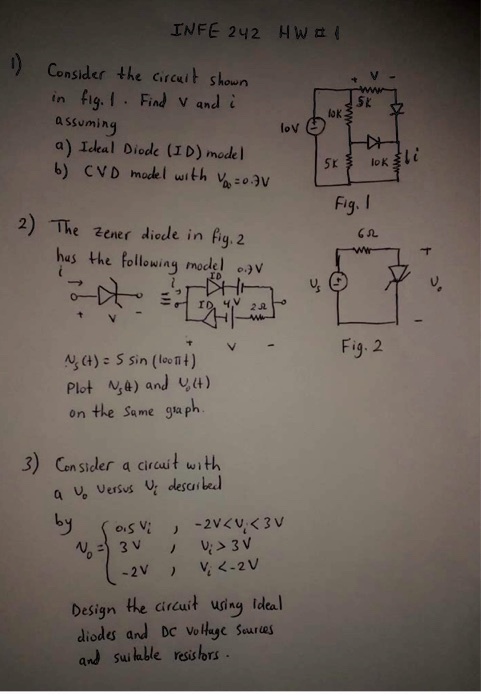 INFE 242 HW # 1
1) Consider the circuit shown
in fig. 1. Find V and i
assuming
a) Ideal Diode (ID) model
b) CVD model with VDo = 0.7V
+ V -
5K
10K
10V
5K
10K
i
Fig. 1
2) The zener diode in fig. 2
has the following model
i
+ V -
≡
i
ID
0.7V
ID
4V
2Ω
+ V -
6Ω
Vs
+
Vo
-
Fig. 2
Vs(t) = 5 sin (100πt)
Plot Vs(t) and Vo(t)
on the same graph.
3) Consider a circuit with
a Vo versus Vi described
by
Vo = { 0.5 Vi , -2V<Vi<3V
3V , Vi > 3V
-2V , Vi < -2V
Design the circuit using ideal
diodes and DC voltage sources
and suitable resistors.